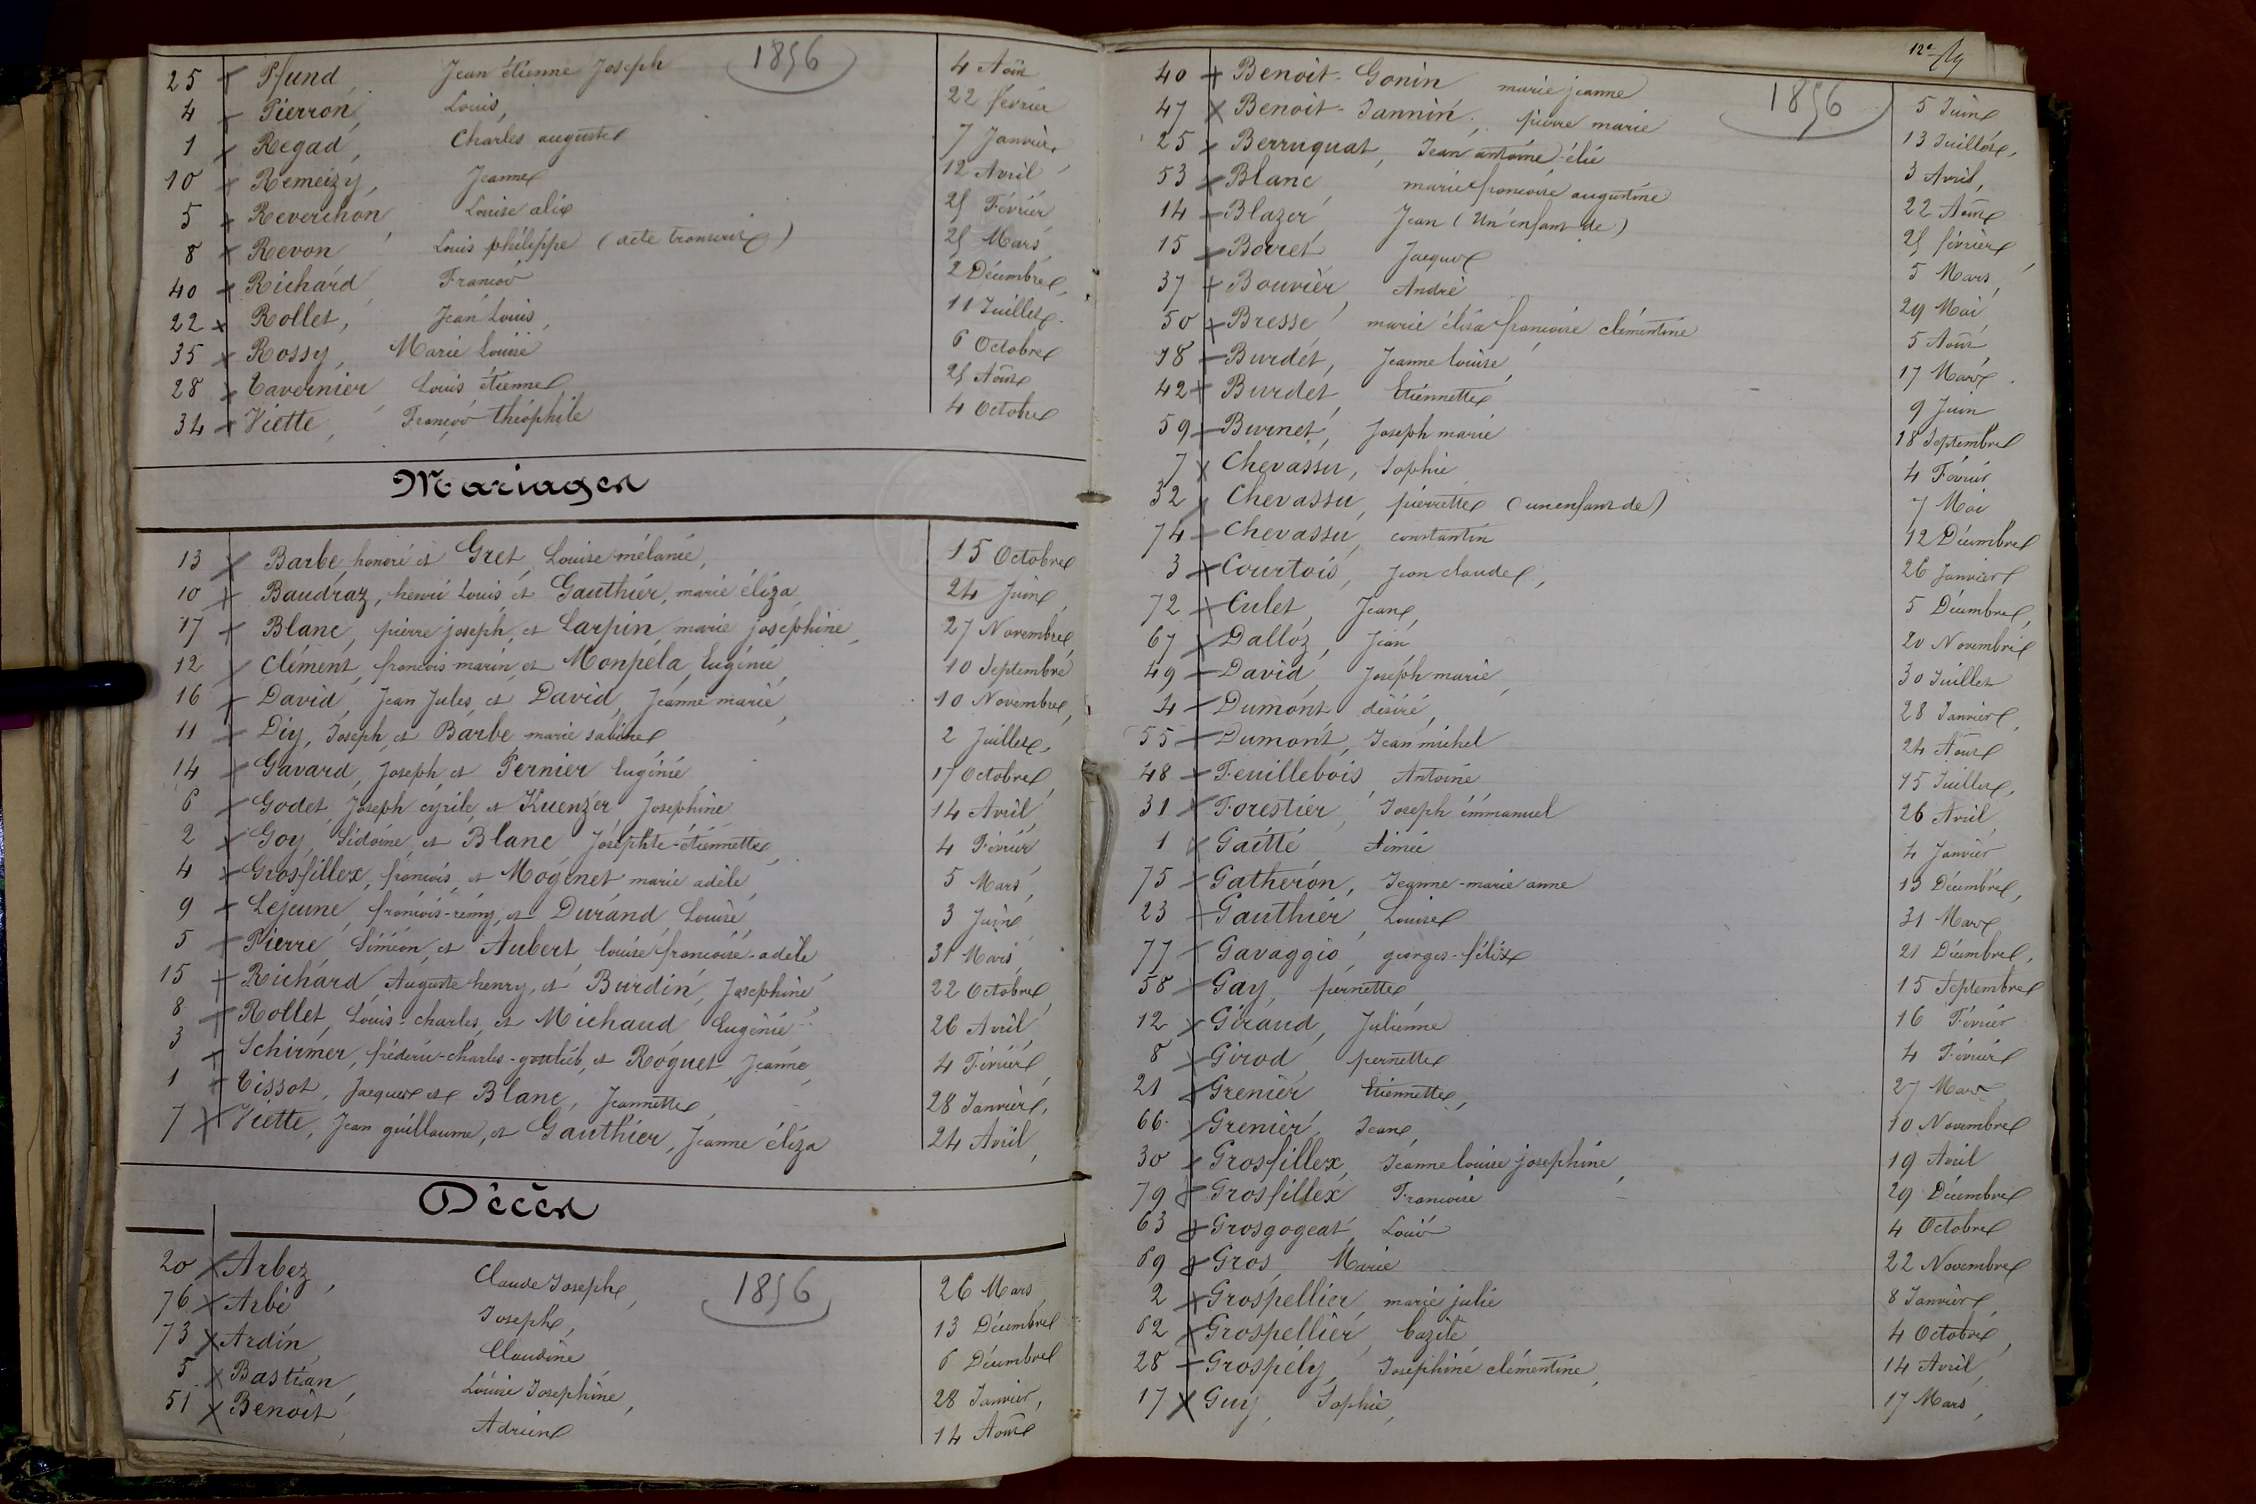 1856
25 Pfund, Jean étienne Joseph 4 Août
4 Pierron, Louis, 22 février
1 Regad, Charles auguste 7 Janvier
10 Remeizy, Jeanne 12 Avril
5 Reverchon, Louise alix 25 Février
8 Revon Louis philippe (acte transcrit) 25 Mars
40 Richard, François 2 Décembre,
22 Rollet, Jean Louis, 11 Juillet
35 Rossy, Marie Louise 6 Octobre
28 Tavernier Louis étienne 25 Août
34 Viette, François théophile 4 Octobre
Mariages
13 Barbe, honoré et Gret, Louise mélanie, 15 Octobre
10 Baudraz, henri Louis et Gauthier, marie éliza 24 Juin,
17 Blanc, pierre joseph, et Larpin, marie joséphine, 27 Novembre,
12 Clément, françois marin, et Monpéla, Eugénie, 10 Septembre
16 David, Jean Jules, et David, Jeanne marie, 10 Novembre,
11 Diy, Joseph, et Barbe marie sabine 2 Juillet,
14 Gavard, Joseph et Pernier Eugénie 17 Octobre,
6 Godet, Joseph cyrile, et Kuenzer, Josephine 14 Avril,
2 Goy, Sidoine, et Blanc Joséphte-étiennette, 4 Février,
4 Grosfillex, françois, et Moginet marie adèle, 5 Mars,
9 Lejeune, françois-rémy, et Durand, Louise, 3 Juin,
5 Pierre, Siméon, et Aubert, louise françoise-adèle 31 Mars,
15 Richard Auguste henry, et Burdin, Josephine 22 Octobre,
8 Rollet, Louis-charles, et Michaud Eugénie 26 Avril,
3 Schirmer, fréderic-charles-gottlieb, et Roguet, Jeanne, 4 Février,
1 Tissot, Jacques et Blanc, Jeannette, 28 Janvier,
7 Viette, Jean guillaume, et Gauthier, Jeanne éliza 24 Avril,
Décès
1856
20 Arbez, Claude Joseph, 26 Mars
76 Arbé Joseph, 13 Décembre
73 Ardin, Claudine 6 Décembre
5 Bastian, Louise Josephine, 28 Janvier,
51 Benoit, Adrien 14 Août
1856
40 Benoit-Gonin marie jeanne 5 Juin
47 Benoit-Jannin, pierre marie 13 Juillet,
25 Berruquat, Jean antoine élie 3 Avril,
53 Blanc, marie françoise augustine 22 Août
14 Blazer, Jean (Un enfant de) 25 février
15 Borret, Jacques 5 Mars,
37 Bouvier, André 29 Mai
50 Bresse, marie élisa françoise clémentine 5 Août
18 Burdet, Jeanne louise, 17 Mars
42 Burdet, Etiennette 9 Juin
59 Burnet, Joseph marie 18 Septembre
7 Chevassu, Sophie 4 Février
32 Chevassu, pierrette (un enfant de) 7 Mai
74 Chevassu, constantin 12 Décembre
3 Courtois, Jean claude, 26 Janvier
72 Culet, Jean, 5 Décembre,
67 Dalloz, Jean 20 Novembre
49 David, Joseph marie, 30 Juillet
4 Dumont, désiré, 28 Janvier,
55 Dumont, Jean michel 24 Août
48 Feuillebois Antoine 15 Juillet,
31 Forestier, Joseph émmanuel 26 Avril,
1 Gaitté Aimée 4 Janvier,
75 Gatheron, Jeanne-marie anne 13 Décembre,
23 Gauthier, Louise 31 Mars
77 Gavaggio, georges-félix 21 Décembre,
58 Gay, pernette, 15 Septembre
12 Giraud, Julienne 16 Février
8 Girod, pernette 4 Février
21 Grenier Etiennette, 27 Mars
66 Grenier, Jean, 10 Novembre
30 Grosfillex, Jeanne louise josephine, 19 Avril
79 Grosfillex, Françoise 29 Décembre
63 Grosgogeat, Louis 4 Octobre
69 Gros, Marie 22 Novembre
2 Grospellier, marie julie 8 Janvier,
62 Grospellier, bazile 4 Octobre,
28 Grospély, Joséphine clémentine, 14 Avril,
17 Guy, Sophie, 17 Mars,